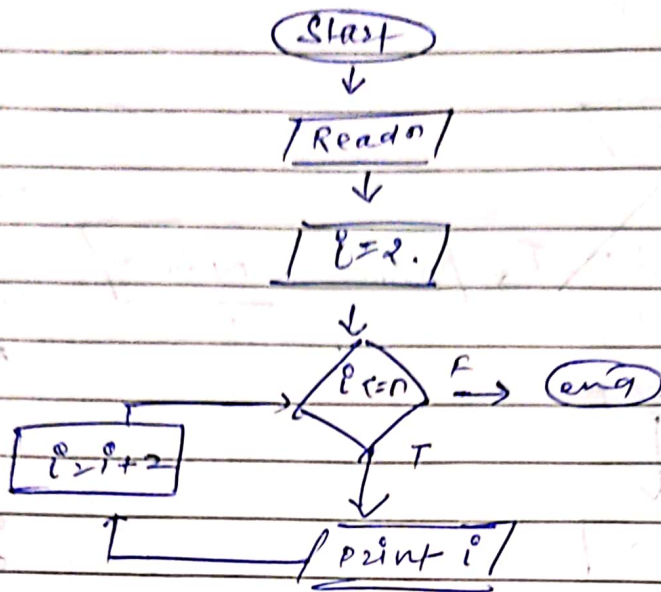 Start
Read n
i=2.
i<=n
F
end
i=i+2
T
print i